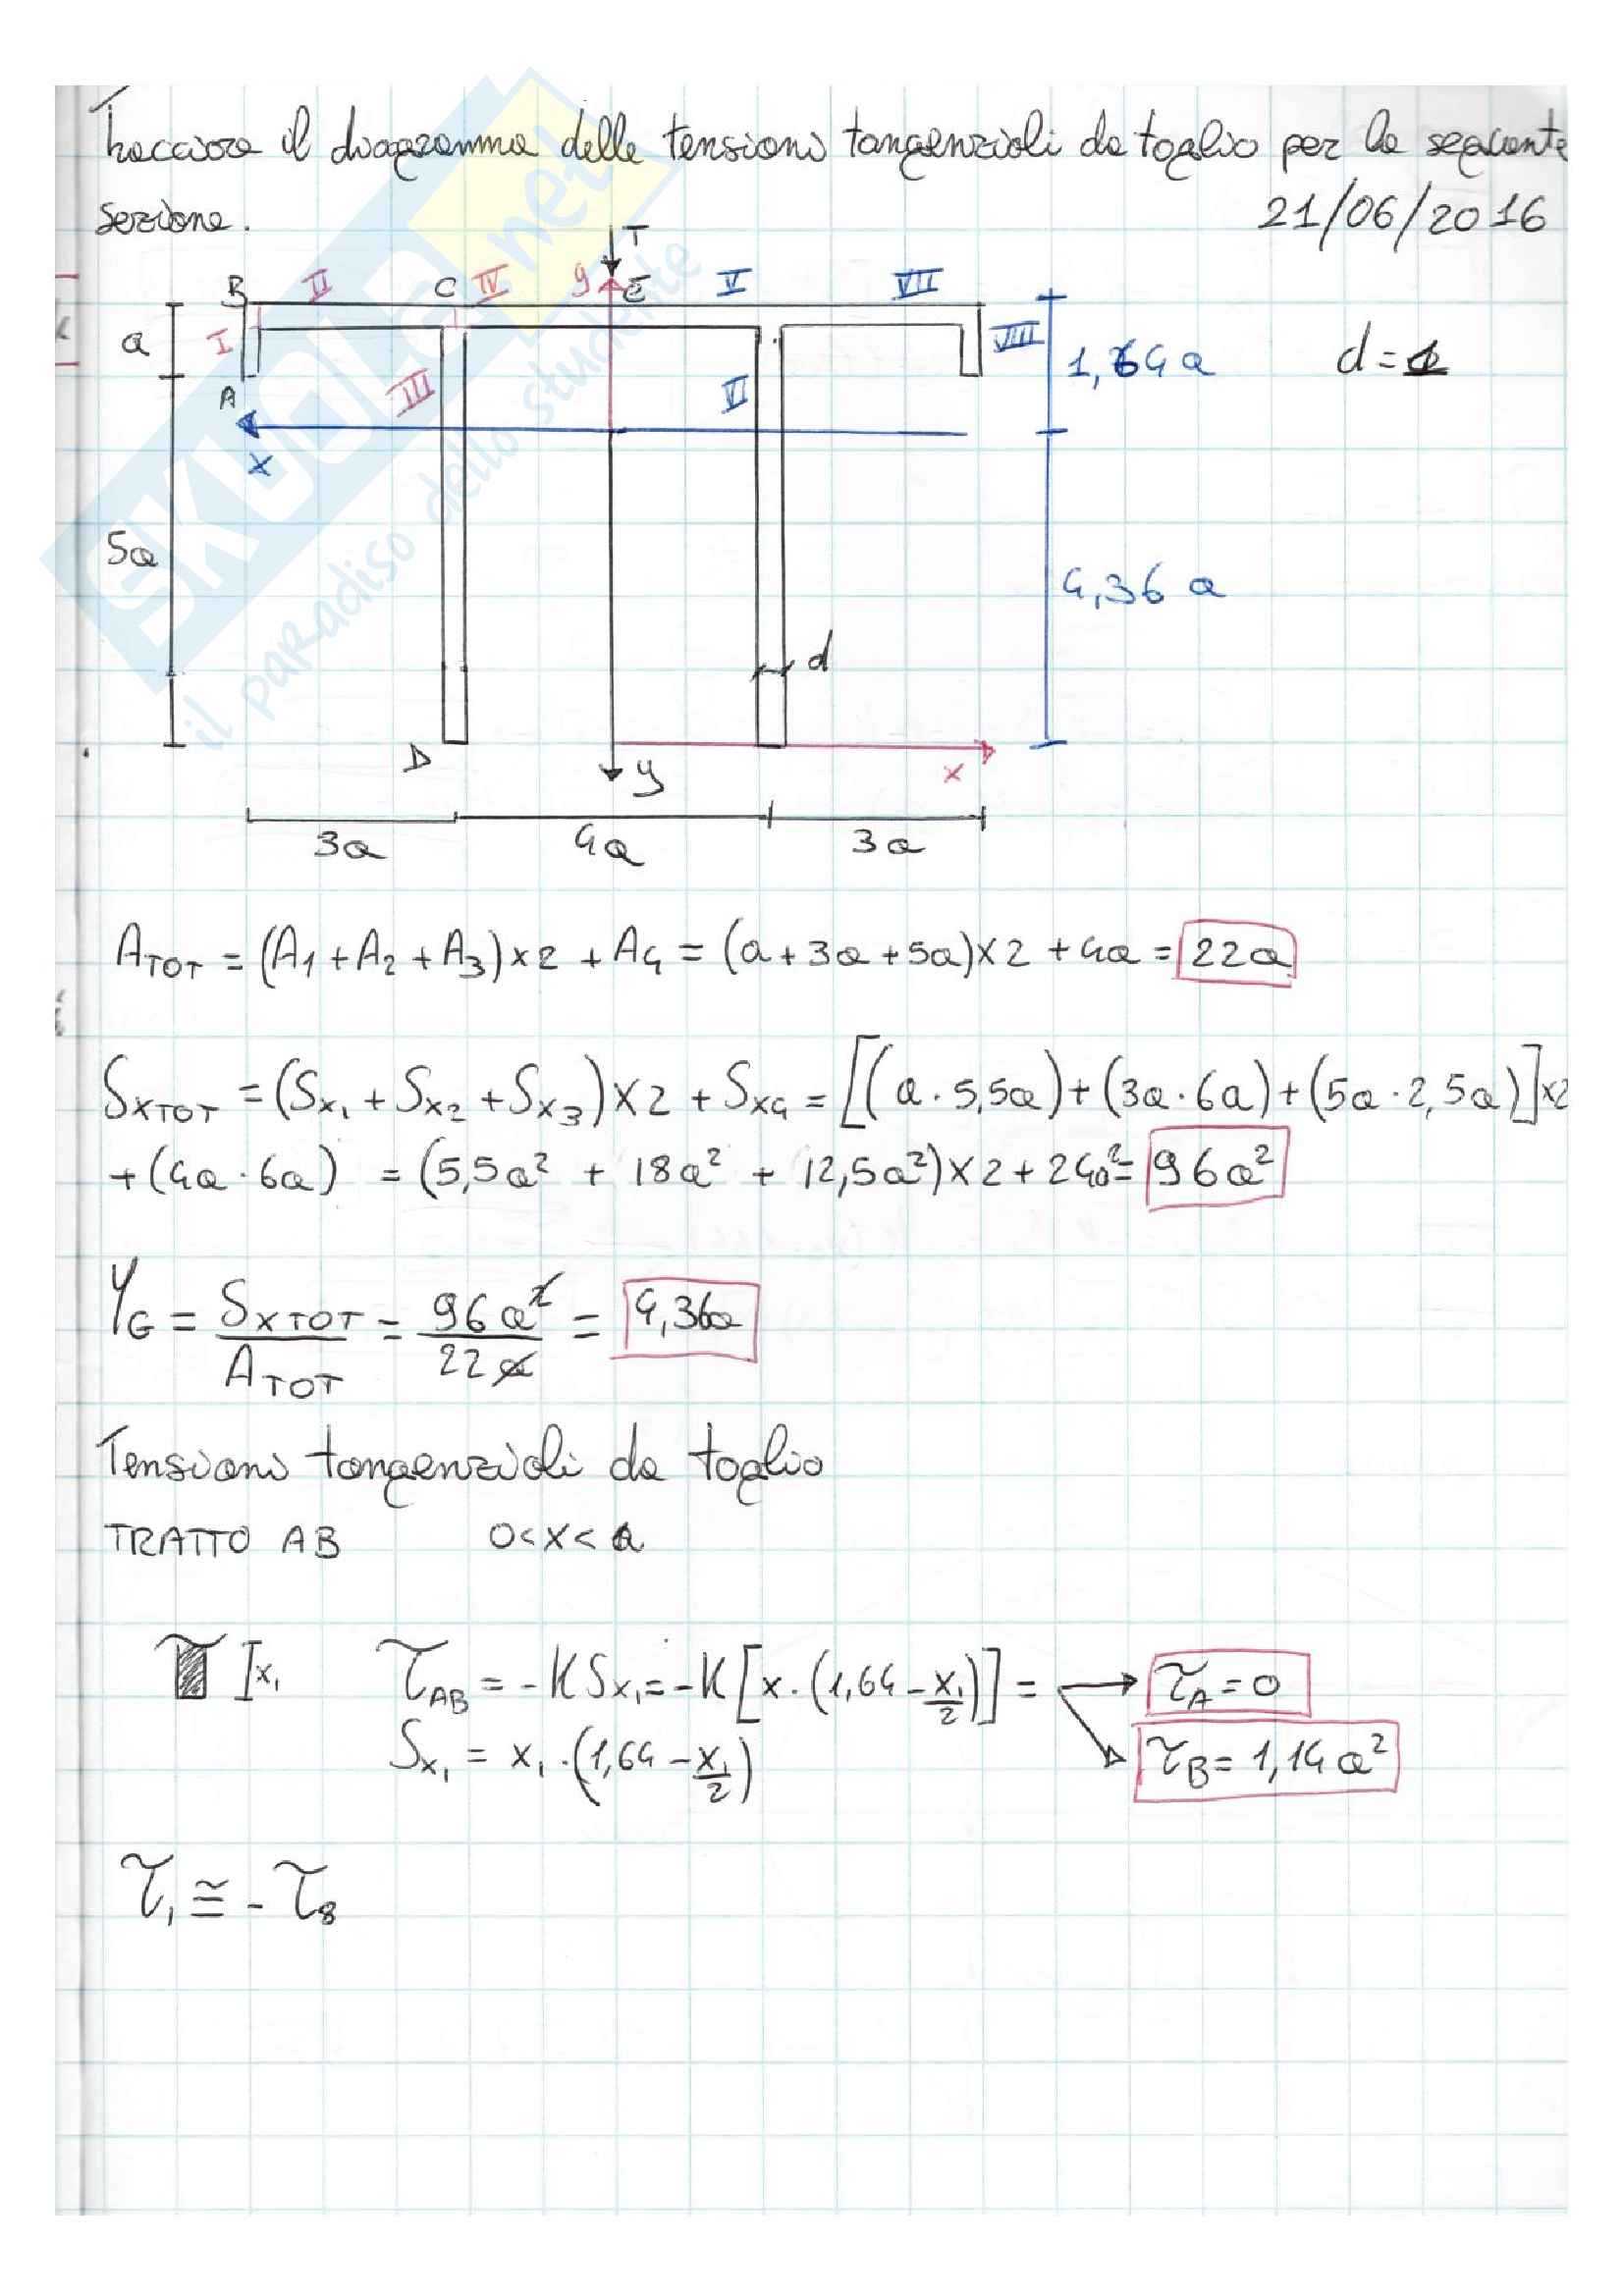 Tracciare il diagramma delle tensioni tangenziali da taglio per la seguente
sezione.
21/06/2016
T
B II C IV y E V VII
a I VIII 1,64a d=1
A III VI
x
5a 4,36 a
d
D y x
3a 4a 3a
SKUOLA.net
il paradiso dello studente
A_TOT = (A1+A2+A3)x2 + A4 = (a+3a+5a)x2 + 4a = 22a
S_XTOT = (Sx1 + Sx2 + Sx3)x2 + Sx4 = [(a·5,5a)+(3a·6a)+(5a·2,5a)]x2
+(4a·6a) = (5,5a² + 18a² + 12,5a²)x2+24a²= 96a²
Y_G = S_XTOT / A_TOT = 96a² / 22a = 4,36a
Tensioni tangenziali da taglio
TRATTO AB 0<x<a
Ix1 τ_AB = -KSx1=-K[x·(1,64-x1/2)] = τ_A=0
Sx1 = x1·(1,64-x1/2) τ_B=1,14a²
τ1 ≅ -τ8